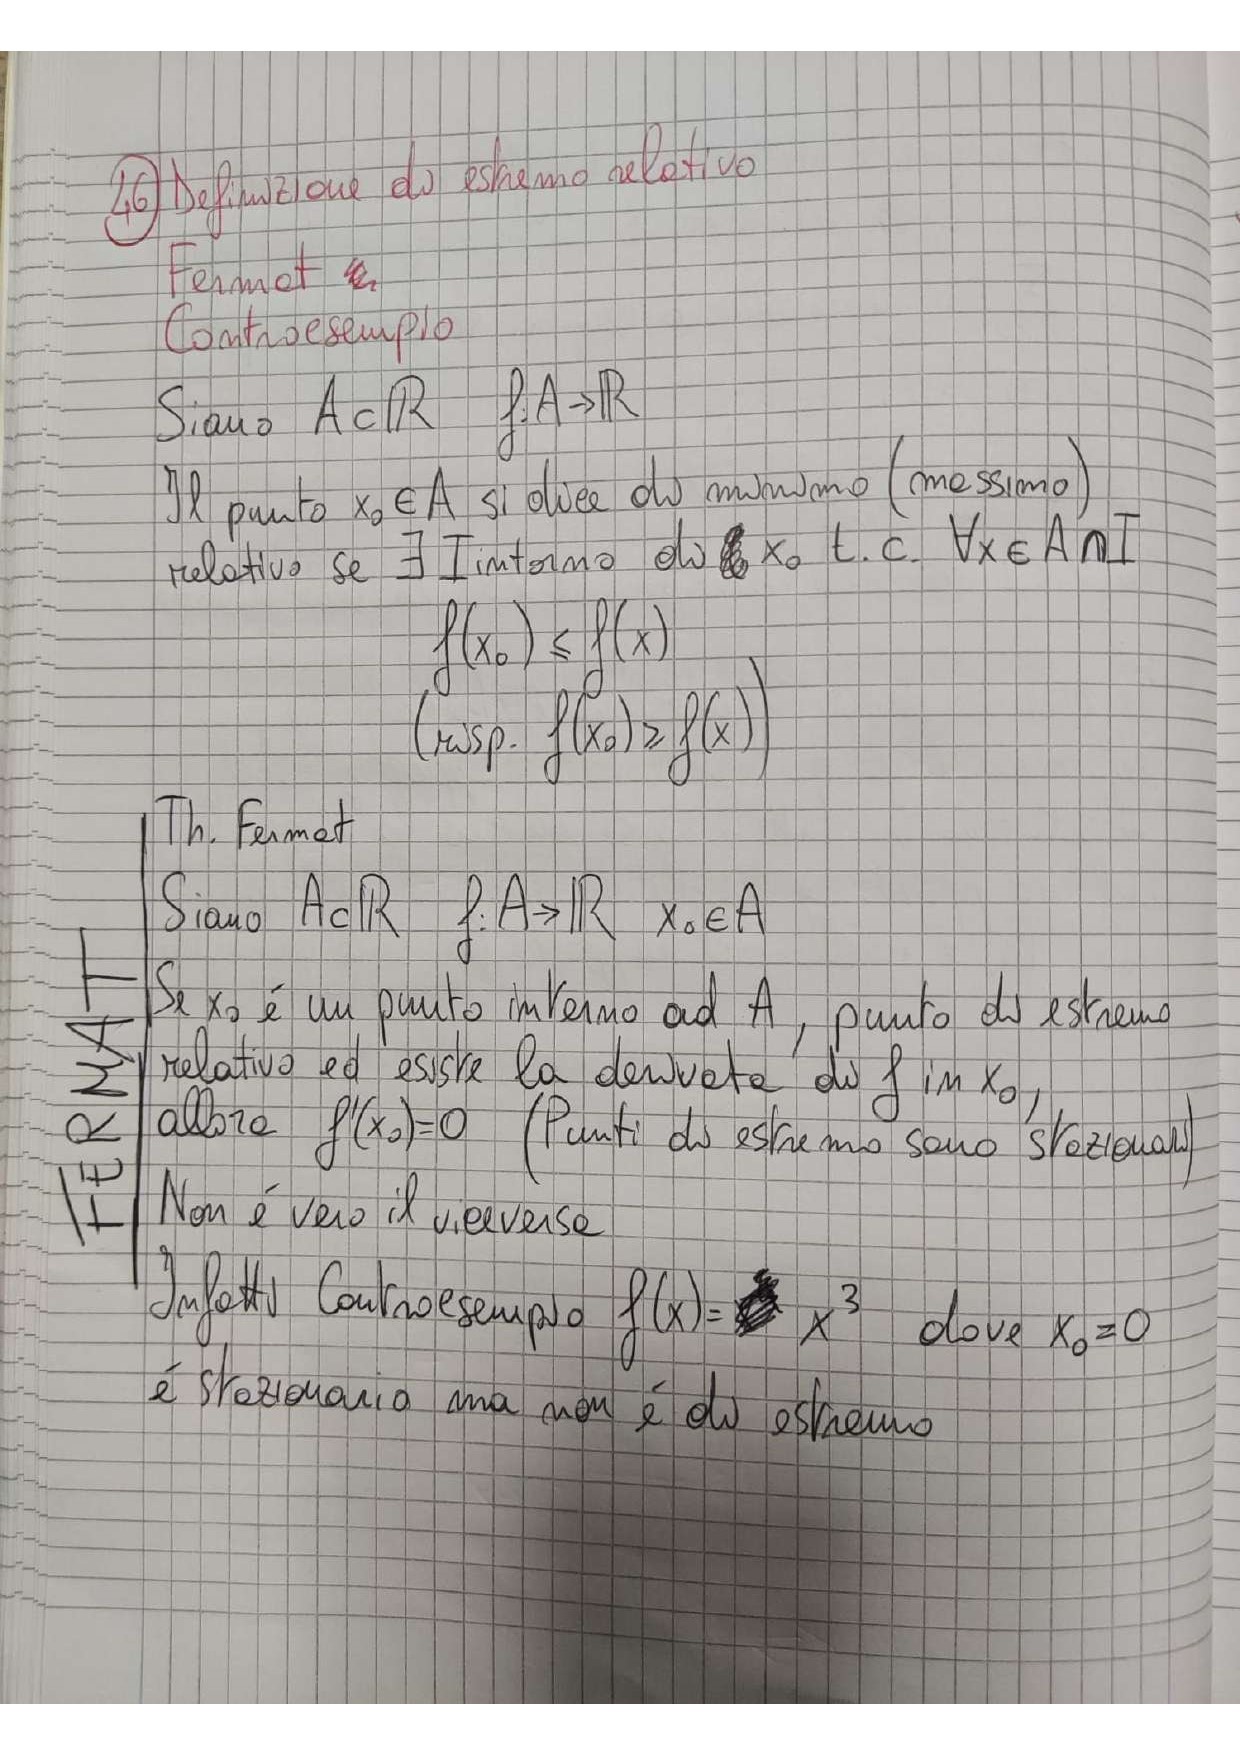 46) Definizione di estremo relativo
Fermat
Controesempio
Siano A⊂ℝ f:A→ℝ
Il punto x₀∈A si dice di minimo (massimo)
relativo se ∃ I intorno di x₀ t.c. ∀x∈A∩I
f(x₀)≤f(x)
(risp. f(x₀)≥f(x))
Th. Fermat
Siano A⊂ℝ f:A→ℝ x₀∈A
Se x₀ é un punto interno ad A, punto di estremo
relativo ed esiste la derivata di f in x₀,
allora f'(x₀)=0 (Punti di estremo sono stazionari)
Non é vero il viceversa
Infatti Controesempio f(x)= x³ dove x₀=0
é stazionario ma non é di estremo
FERMAT